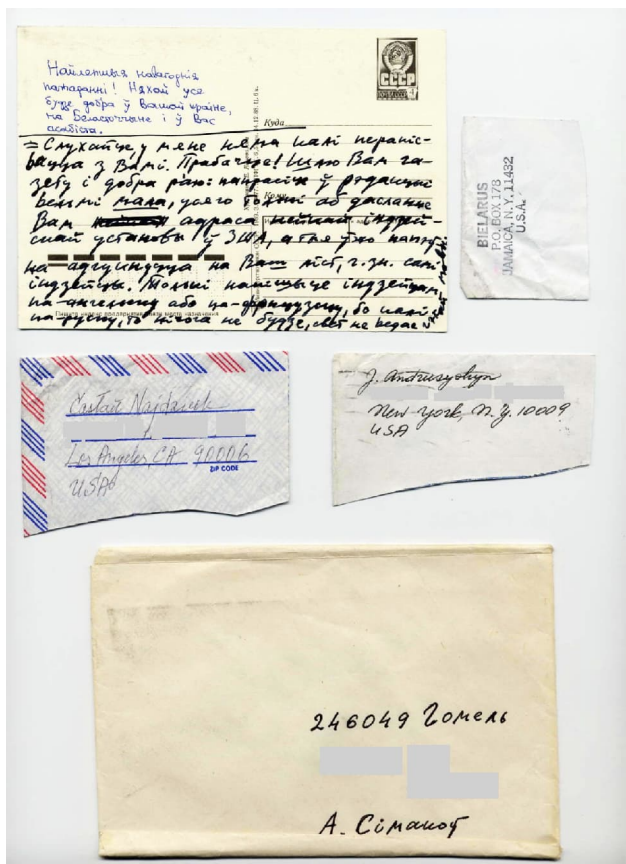 Найлепшыя навагоднія
пажаданні! Няхай усё
будзе добра ў Вашай краіне,
на Беласточчыне і ў Вас
асабіста.
СССР
Куда
= Слухайце у мяне нема калі перапіс-
вацца з Вамі. Прабачце! Шлю Вам га-
зету і добра раю: напрасіце ў рэдакцыі
вельмі мала, усяго толькі аб дасланні
Вам адраса індзей-
скай установы ў ЗША, а тые ўжо
на адгукнуцца на Ваш ліст, г. зн. самі
індзейцы. Толькі напішыце індзейцам
па-ангельску або па-французску, бо калі
па-руску, то нічога не будзе, свет не ведае
Пишите индекс предприятия связи места назначения
BIELARUS
P.O. BOX 178
JAMAICA, N.Y. 11432
U.S.A.
Los Angeles, CA 90006
ZIP CODE
USA
J. Andrusyshyn
New York, N.Y. 10009
USA
246049 Гомель
А. Сімакоў